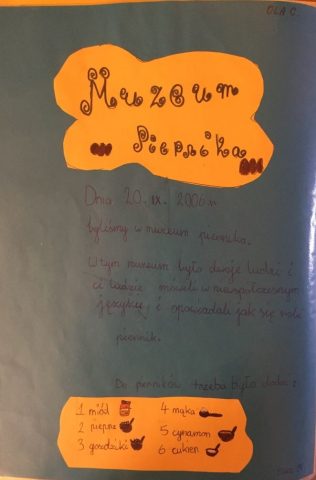 OLA O.
Muzeum
Piernika
Dnia 20.IX.2006 r
byliśmy w muzeum piernika.
W tym muzeum było dwoje ludzi i
ci ludzie mówili w niewspółczesnym
języku i opowiadali jak się robi
piernik.
Do pierników trzeba było dodać:
1 miód
4 mąka
2 pieprz
5 cynamon
3 goździki
6 cukier